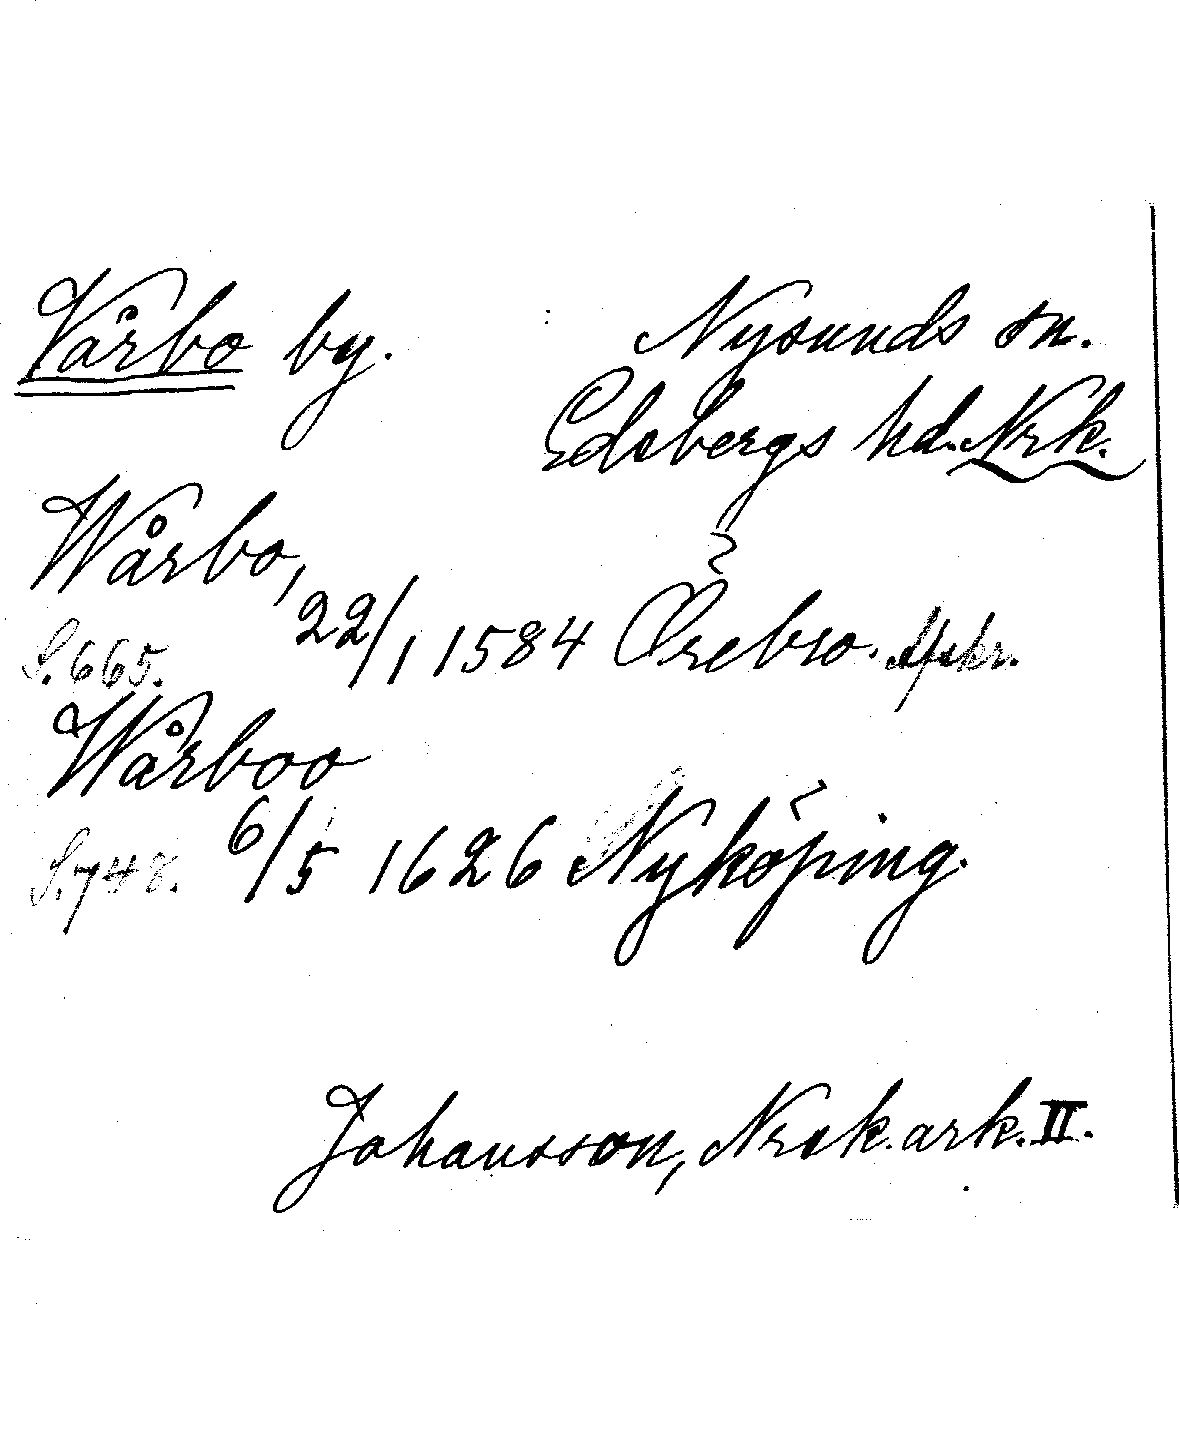 Vårbo by. Nysunds sn.
Edsbergs hd. Nrk.
Wårbo,
22/1 1584 Örebro. Afskr.
S. 665.
Wårboo
6/5 1626 Nyköping.
S. 748.
Johansson, Nrsk. ark. II.